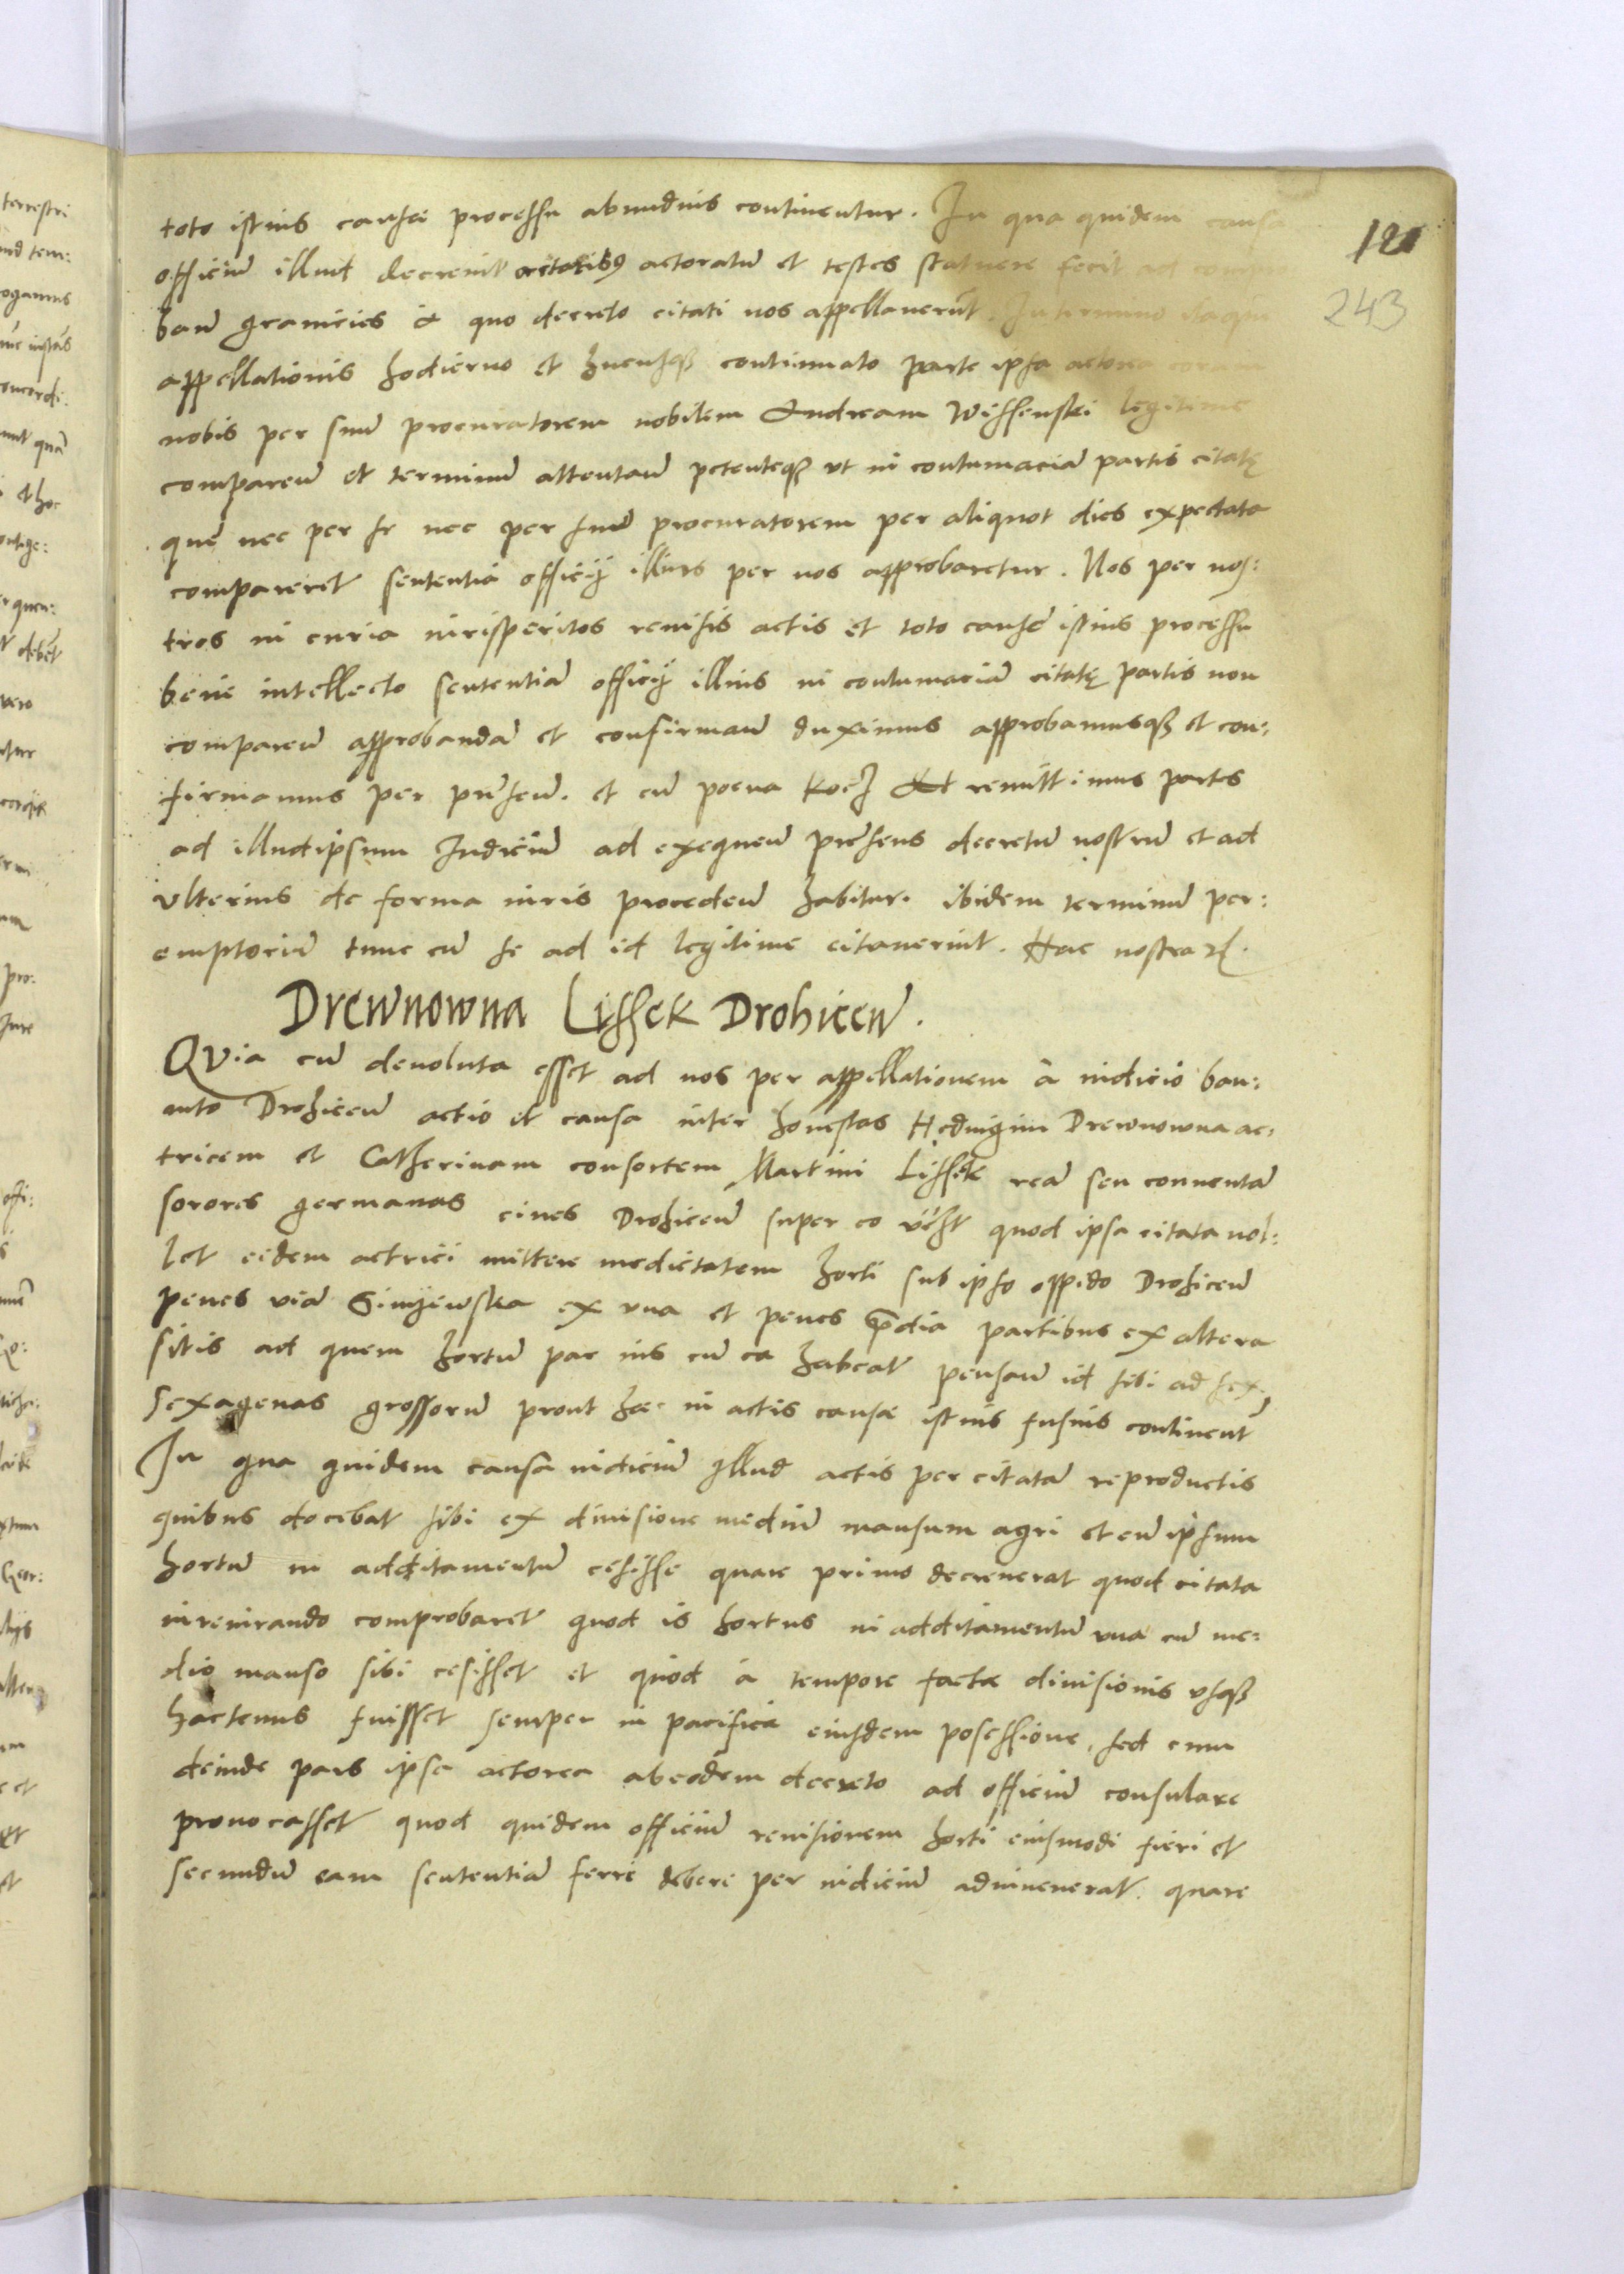 toto istius causae processu abundius continentur. In qua quidem causa
officiū illud decrevit actoratū et testes statuere fecit ad
banū granicies à quo decreto citati nos appellaverūt. In termino itaque
appellationis hodierno et hucusqȝ continuato parte ipsa actorea coram
nobis per suū procuratorem nobilem Andream Wissenski legitime
compareñ et terminū attentañ petenteqȝ ut in contumaciā partis citatę
quę nec per se nec per suū procuratorem per aliquot dies expectata
compareret sententiā officij illius per nos approbaretur. Nos per nos:
tros in curia iurisperitos revisis actis et toto causę istius processu
bene intellecto sententiā officij illius in contumaciā citatę partis non
compareñ approbandā et confirmañ duximus approbamusqȝ et con:
firmamus per prñseñ. et cū poena Kocz remittimus partes
ad illudipsum Iudiciū ad exequeñ prñsens decretū nostrū et ad
ulterius de forma iuris procedeñ habitur. ibidem terminū per:
emptoriū tunc cū se ad id legitime citaverint. Hac nostra ꝛc.
Drewnowna Lissek Drohiceñ.
Quia cū devoluta esset ad nos per appellationem à iudicio ban:
nito Drohiceñ actio et causa inter honestas Hedvigim Drewnowna ac:
tricem et Catherinam consortem Martini Lissek reā seu conventā
sorores germanas cives Drohiceñ super eo quod ipsa citata nol:
let eidem actrici mittere medietatem horti sub ipso oppido Drohiceñ
penes viā ex una et penes p̃dia partibus ex altera
sitis ad quem hortū par ius cū ea habeat pensañ id sibi ad sex
sexagenas grossorū prout haec in actis causae istius fusius continent̃
In qua quidem causa iudiciū illud actis per citatā reproductis
quibus docebat sibi ex divisione mediū mansum agri et eū ipsum
hortū in additamentū cessisse quare primo decreverat quod citata
iureiurando comprobaret quod is hortus in additamentū una cū me:
dio manso sibi cesisset et quod à tempore factae divisionis usqȝ
hactenus fuisset semper in pacifica eiusdem posessione, sed cum
deinde pars ipsa actorea ab eodem decreto ad officiū consulare
provocasset quod quidem officiū revisionem horti eiusmodi fieri et
secundū eam sententiā ferri debere per iudiciū adinvenerat. quare
121
243